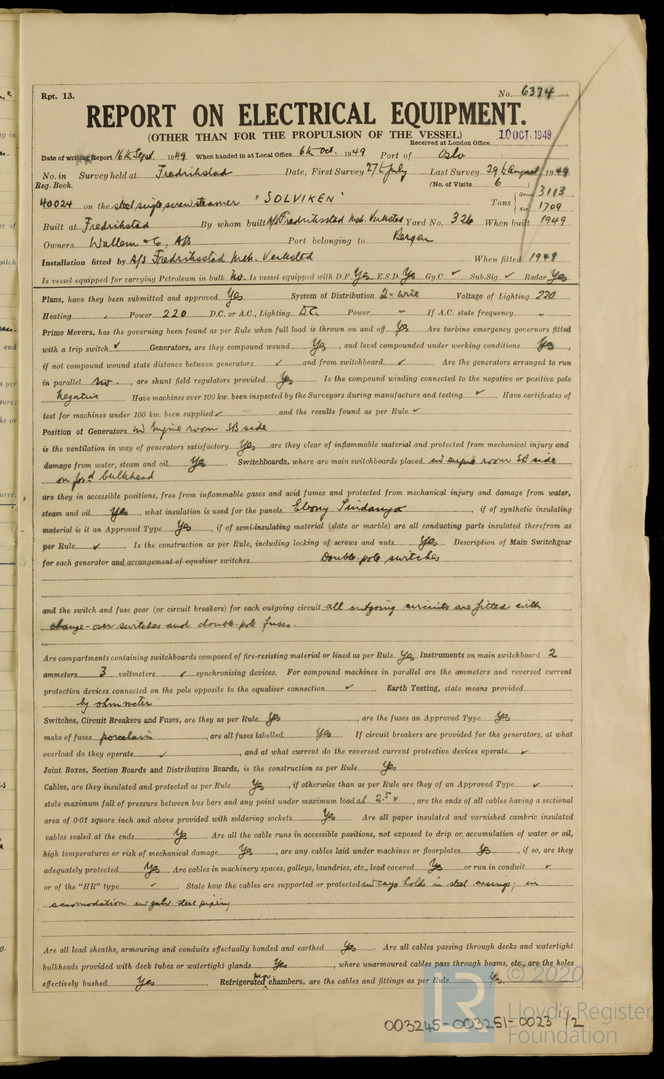 Rpt. 13.
No. 6374
REPORT ON ELECTRICAL EQUIPMENT.
(OTHER THAN FOR THE PROPULSION OF THE VESSEL)
Received at London Office 10 OCT 1949
Date of writing Report 16th Sept. 1949 When handed in at Local Office 6th Oct. 1949 Port of Oslo
No. in Survey held at Fredrikstad Date, First Survey 27th July Last Survey 29th August 1949
Reg. Book. (No. of Visits 6
40024 on the steel single screw steamer "SOLVIKEN" Tons Gross 3113 Net 1709
Built at Fredrikstad By whom built A/S Fredriksstad Mek. Verksted Yard No. 326 When built 1949
Owners Wallem & Co, A/S Port belonging to Bergen
Installation fitted by A/S Fredriksstad Mek. Verksted When fitted 1949
Is vessel equipped for carrying Petroleum in bulk No. Is vessel equipped with D.F. Yes E.S.D. Yes Gy.C. ✓ Sub.Sig. ✓ Radar Yes
Plans, have they been submitted and approved Yes System of Distribution 2-wire Voltage of Lighting 220
Heating " Power 220 D.C. or A.C., Lighting DC. Power " If A.C. state frequency
Prime Movers, has the governing been found as per Rule when full load is thrown on and off Yes Are turbine emergency governors fitted
with a trip switch ✓ Generators, are they compound wound Yes, and level compounded under working conditions Yes,
if not compound wound state distance between generators ✓ and from switchboard ✓ Are the generators arranged to run
in parallel No., are shunt field regulators provided Yes Is the compound winding connected to the negative or positive pole
Negative Have machines over 100 kw. been inspected by the Surveyors during manufacture and testing ✓ Have certificates of
test for machines under 100 kw. been supplied ✓ and the results found as per Rule ✓
Position of Generators in Engine room SB side
is the ventilation in way of generators satisfactory Yes are they clear of inflammable material and protected from mechanical injury and
damage from water, steam and oil Yes Switchboards, where are main switchboards placed in engine room SB side
on for'd bulkhead
are they in accessible positions, free from inflammable gases and acid fumes and protected from mechanical injury and damage from water,
steam and oil Yes, what insulation is used for the panels Ebony Sindanyo, if of synthetic insulating
material is it an Approved Type Yes, if of semi-insulating material (slate or marble) are all conducting parts insulated therefrom as
per Rule ✓ Is the construction as per Rule, including locking of screws and nuts Yes Description of Main Switchgear
for each generator and arrangement of equaliser switches Double pole switches
and the switch and fuse gear (or circuit breakers) for each outgoing circuit all outgoing circuits are fitted with
change-over switches and double pole fuses.
Are compartments containing switchboards composed of fire-resisting material or lined as per Rule Yes Instruments on main switchboard 2
ammeters 3 voltmeters ✓ synchronising devices. For compound machines in parallel are the ammeters and reversed current
protection devices connected on the pole opposite to the equaliser connection ✓. Earth Testing, state means provided
by ohmmeter
Switches, Circuit Breakers and Fuses, are they as per Rule Yes, are the fuses an Approved Type Yes,
make of fuses porcelain, are all fuses labelled Yes If circuit breakers are provided for the generators, at what
overload do they operate ✓, and at what current do the reversed current protective devices operate ✓
Joint Boxes, Section Boards and Distribution Boards, is the construction as per Rule Yes
Cables, are they insulated and protected as per Rule Yes, if otherwise than as per Rule are they of an Approved Type ✓
state maximum fall of pressure between bus bars and any point under maximum load 2.5 v, are the ends of all cables having a sectional
area of 0·01 square inch and above provided with soldering sockets Yes Are all paper insulated and varnished cambric insulated
cables sealed at the ends Yes Are all the cable runs in accessible positions, not exposed to drip or accumulation of water or oil,
high temperatures or risk of mechanical damage Yes, are any cables laid under machines or floorplates Yes, if so, are they
adequately protected Yes. Are cables in machinery spaces, galleys, laundries, etc., lead covered Yes or run in conduit ✓
or of the "HR" type ✓. State how the cables are supported or protected in cargo holds in steel casings; in
accomodation in galv. steel piping
Are all lead sheaths, armouring and conduits effectually bonded and earthed Yes Are all cables passing through decks and watertight
bulkheads provided with deck tubes or watertight glands Yes, where unarmoured cables pass through beams, etc., are the holes
effectively bushed Yes Refrigerated chambers, are the cables and fittings as per Rule Yes
© 2020
LR
Lloyd's Register
Foundation
003245-003251-0023 1/2